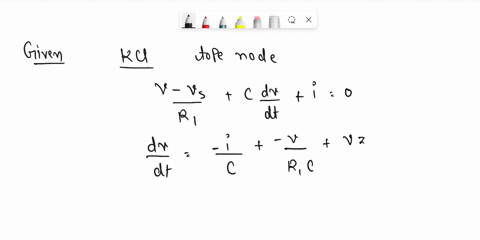 Given KCl tope node
V - Vs / R1 + C dv/dt + i = 0
dv/dt = -i/C + -v/R1C + v2